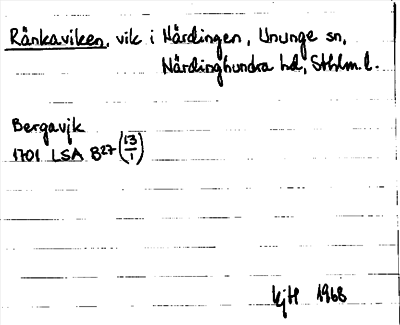 Rånkaviken, vik i Närdingen, Ununge sn,
Närdinghundra hd, Sthlm. l.
Bergavjk
1701 LSA B27 (13/1)
kjH 1968